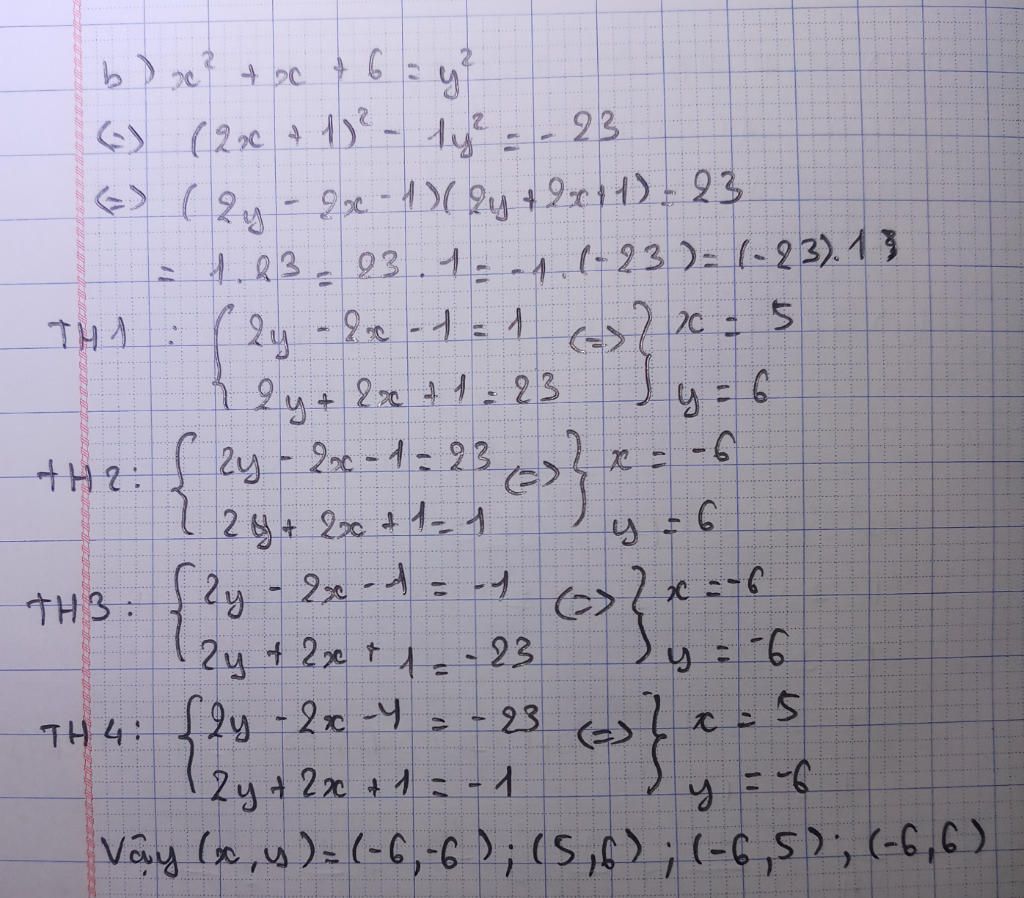 b) x² + x + 6 = y²
<=> (2x + 1)² - 1y² = - 23
<=> (2y - 2x - 1)(2y + 2x + 1) = 23
= 1.23 = 23.1 = -1.(-23) = (-23).1
TH1: { 2y - 2x - 1 = 1 <=> } x = 5
2y + 2x + 1 = 23 y = 6
TH2: { 2y - 2x - 1 = 23 <=> } x = -6
2y + 2x + 1 = 1 y = 6
TH3: { 2y - 2x - 1 = -1 <=> } x = -6
2y + 2x + 1 = -23 y = -6
TH4: { 2y - 2x - 1 = -23 <=> } x = 5
2y + 2x + 1 = -1 y = -6
Vậy (x,y) = (-6,-6); (5,6); (-6,5); (-6,6)